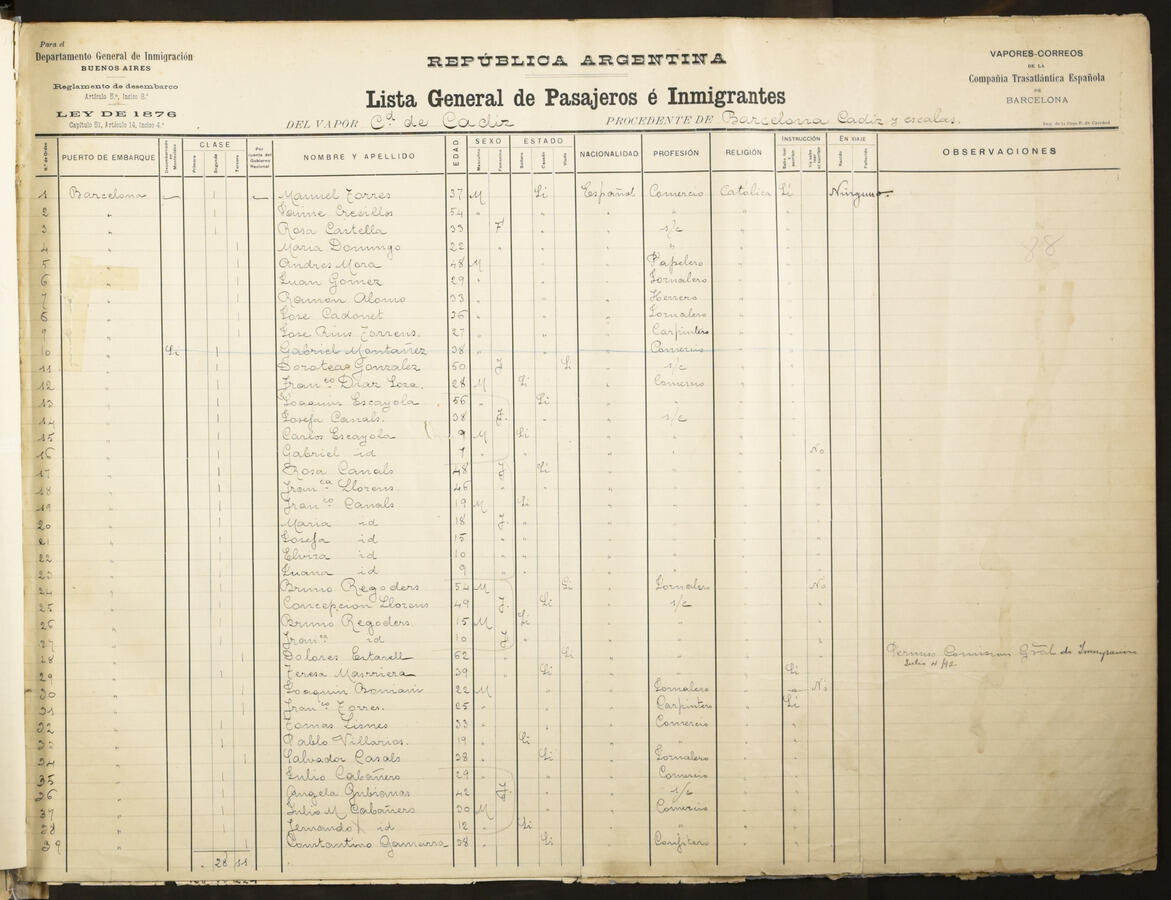 Para el
Departamento General de Inmigración
BUENOS AIRES
Reglamento de desembarco
Artículo 8°, Inciso 8°
LEY DE 1876
Capítulo 81, Artículo 14, Inciso 4°
REPÚBLICA ARGENTINA
Lista General de Pasajeros é Inmigrantes
DEL VAPOR Cd. de Cadiz PROCEDENTE DE Barcelona Cadiz y escalas.
VAPORES-CORREOS
DE LA
Compañía Trasatlántica Española
DE
BARCELONA
N.° de Orden PUERTO DE EMBARQUE CLASE Primera Segunda Tercera NOMBRE Y APELLIDO EDAD SEXO Masculino Femenino ESTADO Soltero Casado Viudo NACIONALIDAD PROFESIÓN RELIGIÓN INSTRUCCIÓN EN VIAJE OBSERVACIONES
1 Barcelona Manuel Torres 37 M Si Español Comercio Católica Si Ninguno
2 " 54 "
3 " Rosa Castella 33 F s/c
4 " Maria Domingo 22 "
5 " Andres Mora 48 M Papelero
6 " Juan Gomez 29 " Jornalero
7 " Ramon Alonso 33 " Herrero
8 " Jose Cadonet 36 " Jornalero
9 " Jose Rius Torrens. 27 " Carpintero
10 " Si Gabriel Montañez 38 " Comercio
11 " Doroteas Gonzalez 50 F Si s/c
12 " Franco Diaz Sosa. 28 M Si Comercio
13 " Joaquin Escayola 56 " Si
14 " Josefa Canals. 38 F s/c
15 " Carlos Escayola 9 M Si
16 " Gabriel id 7 " No
17 " Rosa Canals 48 F Si
18 " Franca Llorens 46 "
19 " Franco Canals 19 M Si
20 " Maria id 18 F
21 " Josefa id 15 "
22 " Elvira id 10 "
23 " Juana id 9 "
24 " Bruno Regoders 54 M Si Jornalero No
25 " Concepcion Llorens 49 F Si s/c
26 " Bruno Regoders 15 M Si
27 " Franca id 10 F
28 " Dolores Estarell 62 Si Permiso Comision Gral de Inmigracion
Julio 4/92
29 " Teresa Marriera 39 Si Si
30 " Joaquin 22 M Jornalero No
31 " Franco Torres. 25 " Carpintero Si
32 " Tomas 33 " Comercio
33 " Pablo Villarios. 19 " Si
34 " Salvador Casals 38 " Si Jornalero
35 " Julio Cabañero 29 " Comercio
36 " Angela 42 F s/c
37 " Julio M Cabañero 30 M Comercio
38 " Fernando id 12 " Si
39 Constantino Gamarra 38 Si Confitero
28 11
88